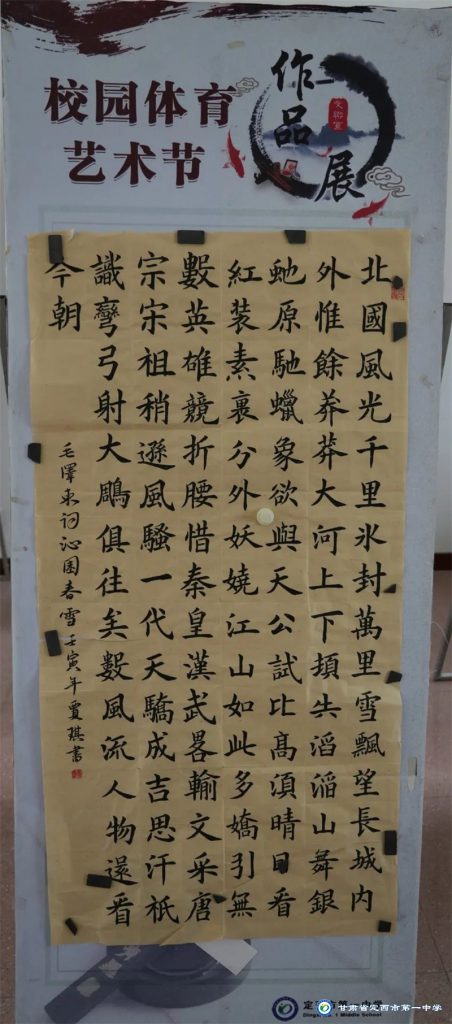 校园体育
艺术节
作品
展
北國風光千里氷封萬里雪飄望長城内
外惟餘莽莽大河上下頃失滔滔山舞銀
虵原馳蠟象欲與天公試比髙湏晴日看
紅装素裹分外妖嬈江山如此多嬌引無
數英雄競折腰惜秦皇漢武畧輸文采唐
宗宋祖稍遜風騷一代天驕成吉思汗祇
識彎弓射大鵰俱往矣數風流人物還看
今朝
毛澤東詞沁園春雪壬寅年賈琪書
甘肃省定西市第一中学